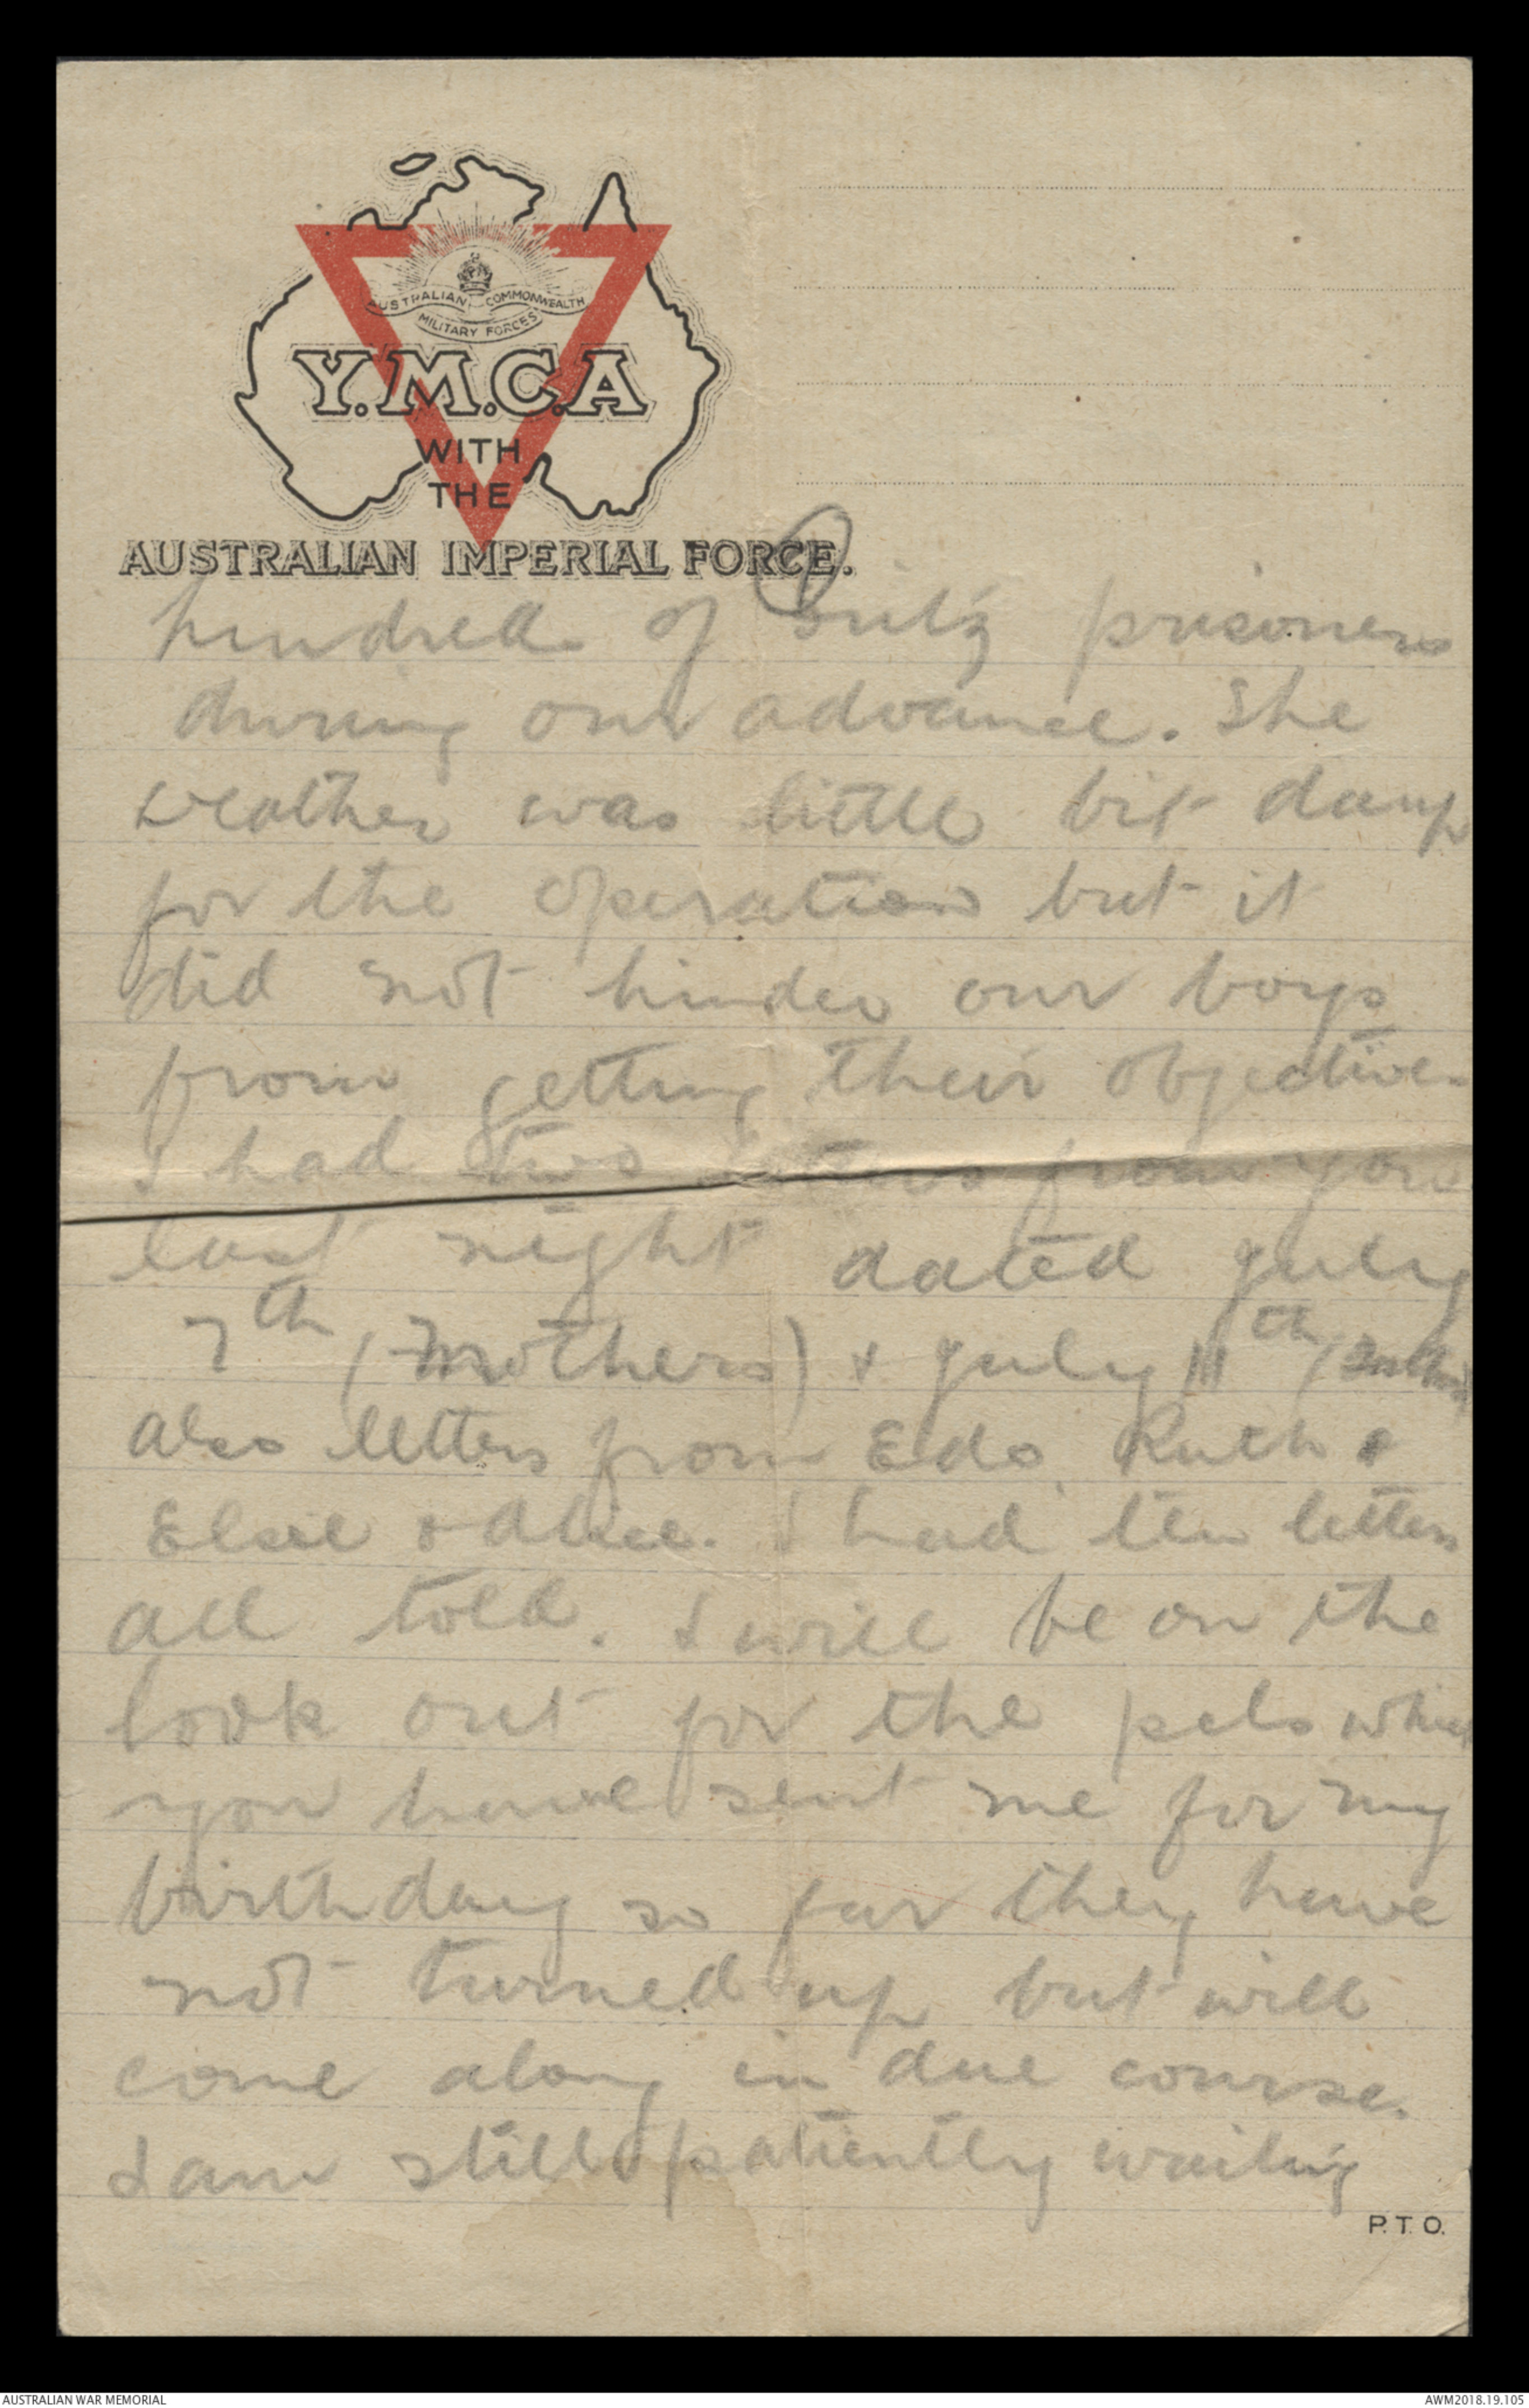 AUSTRALIAN COMMONWEALTH
MILITARY FORCES
Y.M.C.A
WITH
THE
AUSTRALIAN IMPERIAL FORCE.
hundred of prisoners
during our advance. The
weather was little bit damp
for the operation but it
did not hinder our boys
from getting their objective.
I had two letters from you
last night dated July
7th (Mothers) & July 11th
also letters from Edo Ruth &
Elsie & Alice. I had ten letters
all told. I will be on the
look out for the pcls which
you have sent me for my
birthday so far they have
not turned up but will
come along in due course.
I am still patiently waiting
P.T.O.
AUSTRALIAN WAR MEMORIAL
AWM2018.19.105